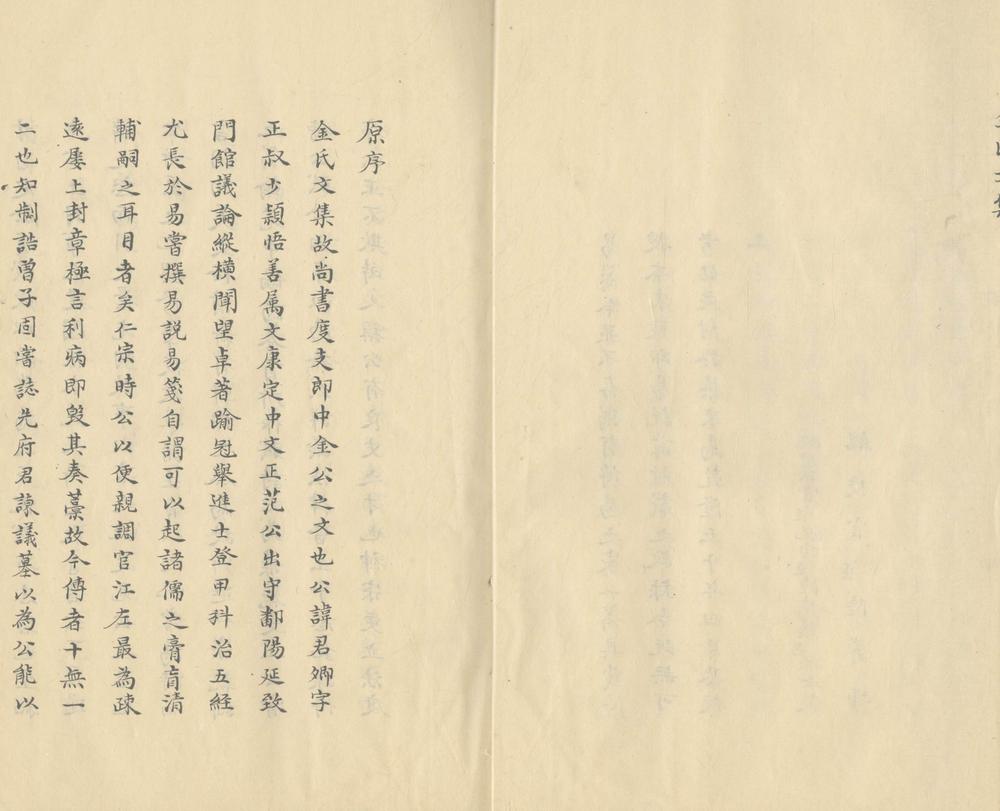 金氏文集
原序
金氏文集故尚書度支郎中金公之文也公諱君卿字
正叔少穎悟善属文康定中文正范公出守鄱陽延致
門館議論縱横聞望卓著踰冠舉進士登甲科治五經
尤長於易嘗撰易説易箋自謂可以起諸儒之膏肓清
輔嗣之耳目者矣仁宗時公以便親調官江左最為疎
逺屢上封章極言利病即毀其奏藁故今傳者十無一
二也知制誥曽子固嘗誌先府君諫議墓以為公能以